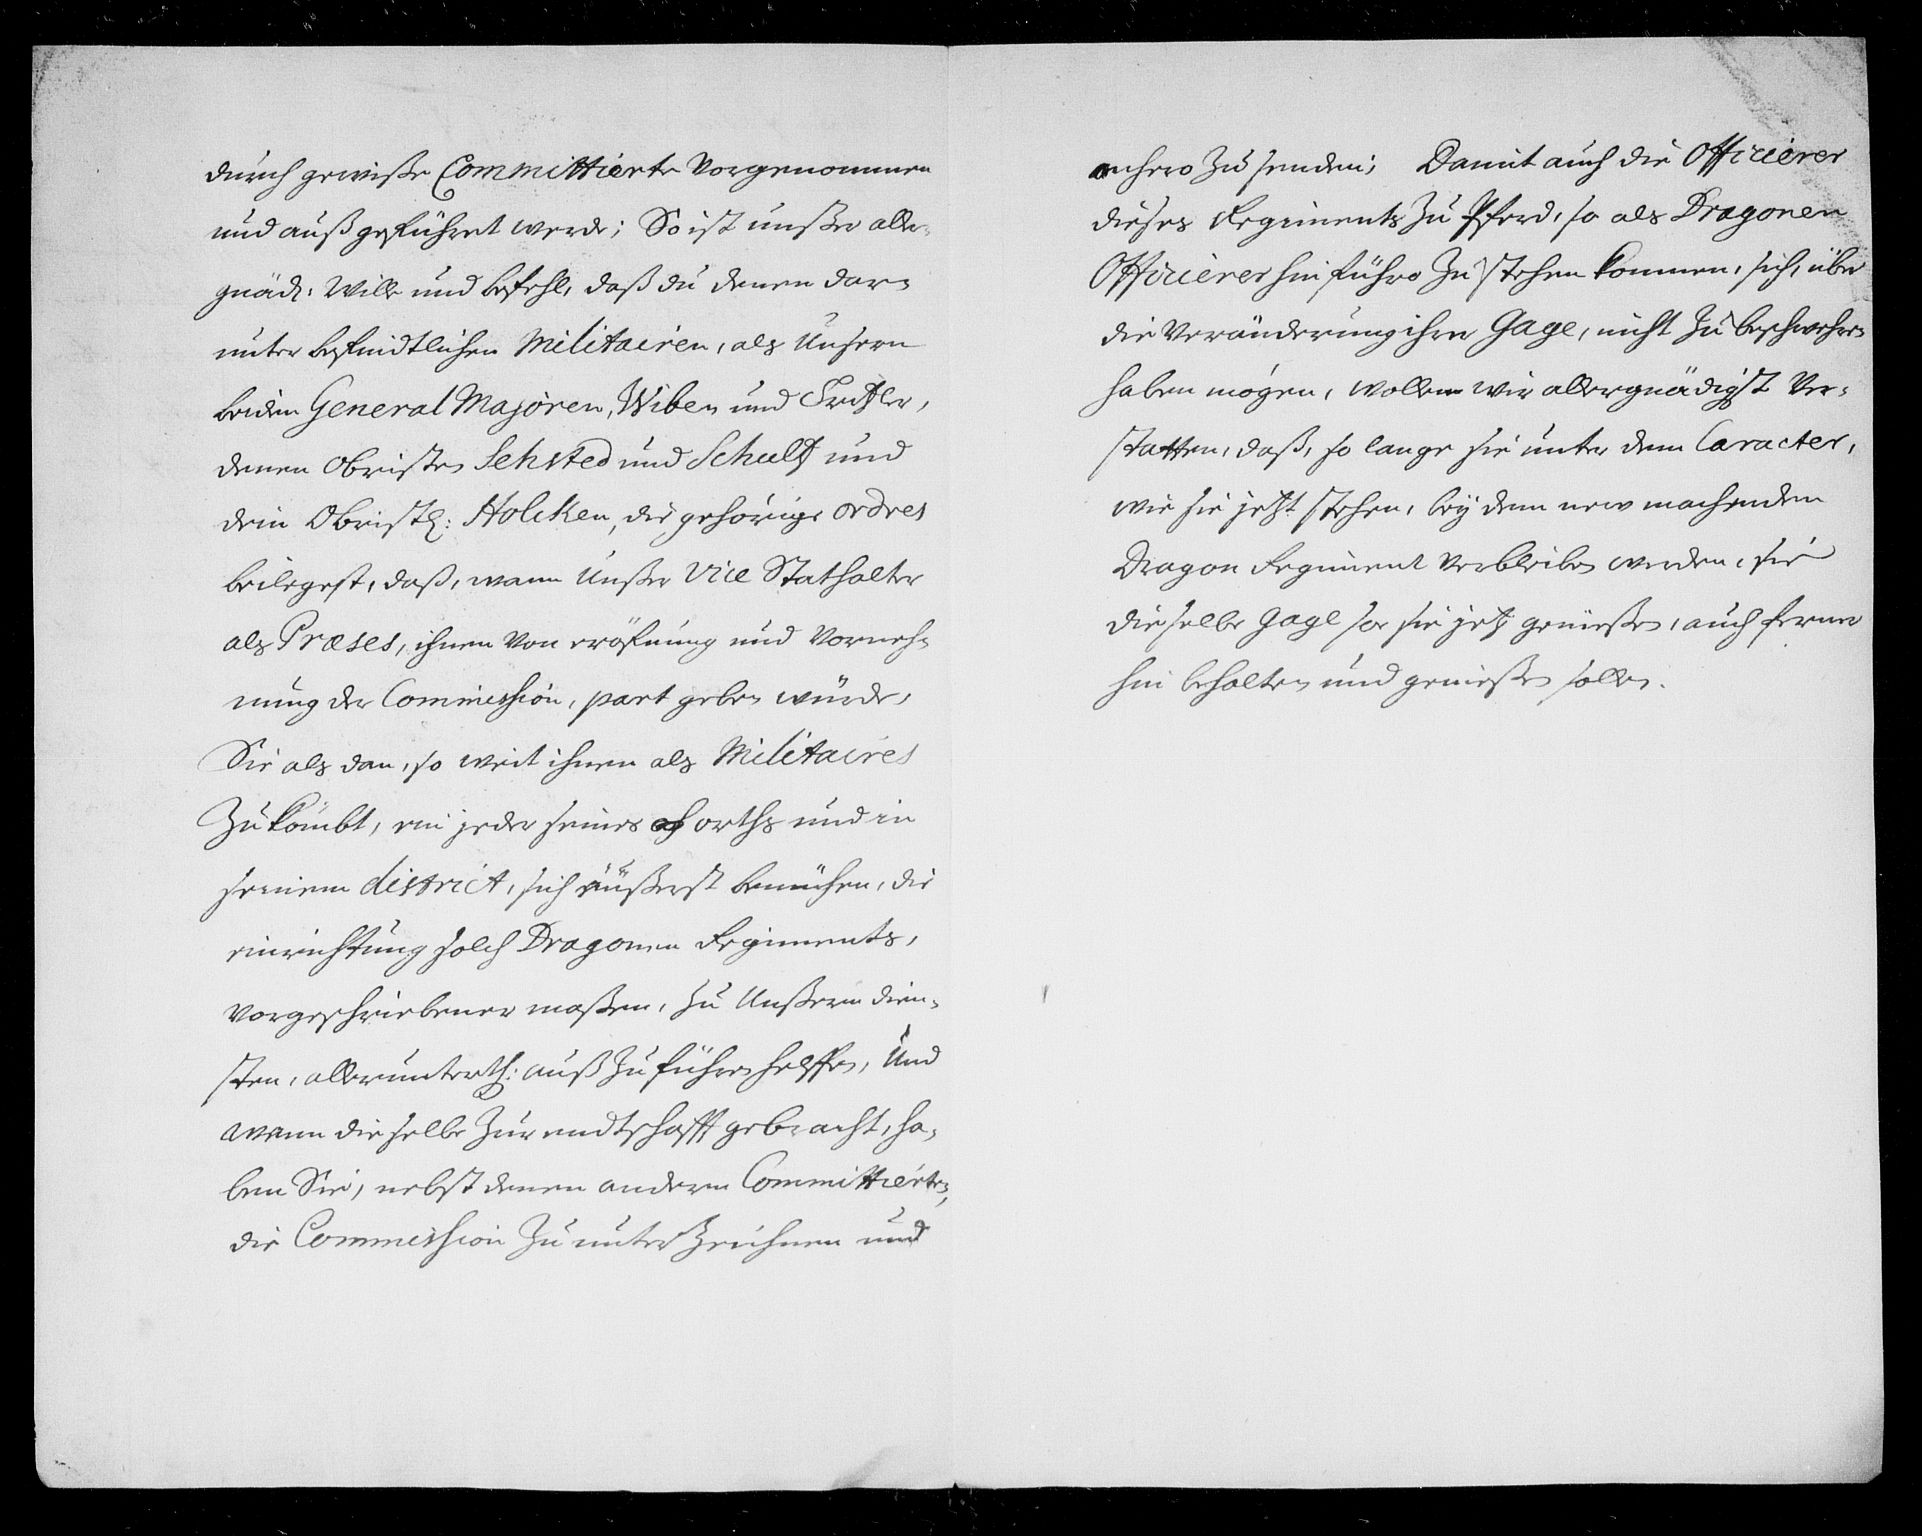 durch gewiße Committierte vorgenommen
und außgeführet werde; So ist unßer aller-
gnäd: Wille und befehl, daß du denen dar-
unter befindtlichen Militairen, als Unsern
beiden General Majoren, Wiben und
denen Obristen Sehsted und Schult und
dem Obristl: Holcken, die gehörige ordres
beilegest, daß, wann Unßer Vice Stathalter
als Præses, ihnen von eröfnung und Vorneh-
mung der Commission, part geben würde,
Sie als dan, so weit ihnen als Militaires
Zukombt, ein jeder seines orths und in
seinem district, sich äußerst bemühen, die
einrichtung solch Dragonen Regiments,
vorgeschriebener maßen, zu Unßerm dien-
sten, allerunterth: auß zu führen helffen, Und
wann dieselbe zur endtschafft gebracht, ha-
ben Sie, nebst denen andern Committierten,
die Commission zu unterzeichnen und
anhero zu senden; Damit auch die Officierer
dieses Regiments zu Pferd, so als Dragonen
Officierer hinführo zu stehen kommen, sich, über
die Veränderung ihrer Gage, nicht zu beschwehren
haben mögen, wollen wir allergnädigst ver-
statten, daß, so lange sie unter dem Caracter,
wie sie jetzt stehen, bey dem new machenden
Dragon Regiment verbleiben werden, sie
dieselbe Gage so sie jetz genießen, auch ferner
hin behalten und genießen sollen.